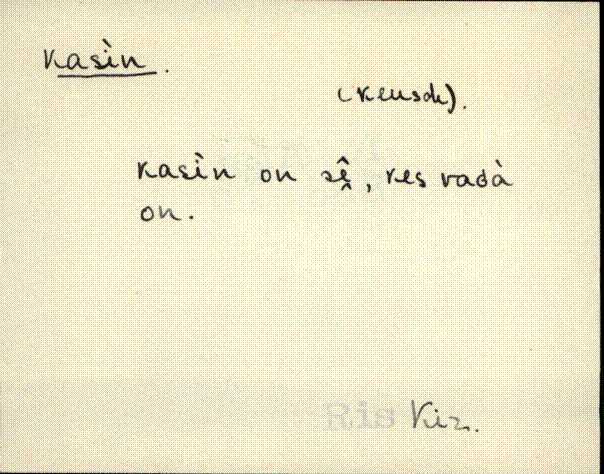 kasìn.
(keusch).
kasìn on sê̬, kes vadà
on.
Ris Kiz.